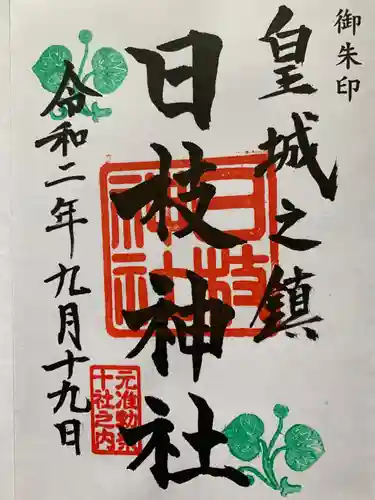 御朱印
皇城之鎮
日枝神社
令和二年九月十九日
日枝
神社
元准勅祭
十社之内